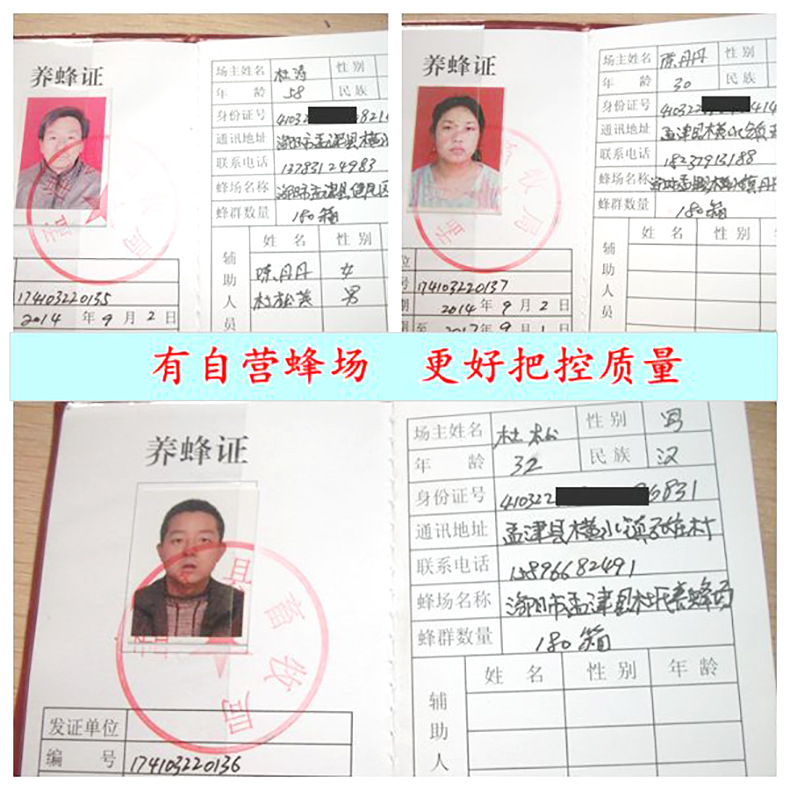 养蜂证
场主姓名 杜涛 性别
年 龄 58 民族
身份证号 41032 821
通讯地址 洛阳市孟津县横水
联系电话 13783124983
蜂场名称 洛阳市孟津县
蜂群数量 180箱
辅助人员
姓 名 性别
陈丹丹 女
杜松英 男
174103220135
2014 年 9 月 2 日
养蜂证
场主姓名 陈丹丹 性别
年 龄 30 民族
身份证号 410322 414
通讯地址 孟津县横水镇
联系电话 18237913188
蜂场名称 洛阳市孟津县横水镇丹丹
蜂群数量 180箱
辅助人员
姓 名 性别 年
号 174103220137
期 2014 年 9 月 2 日
期至 2017 年 9 月 1 日
有自营蜂场 更好把控质量
养蜂证
场主姓名 杜松 性别 男
年 龄 32 民族 汉
身份证号 410322 6831
通讯地址 孟津县横水镇
联系电话 15896682491
蜂场名称 洛阳市孟津县
蜂群数量 180箱
辅助人
姓 名 性别 年龄
畜牧局
发证单位
编 号 174103220136